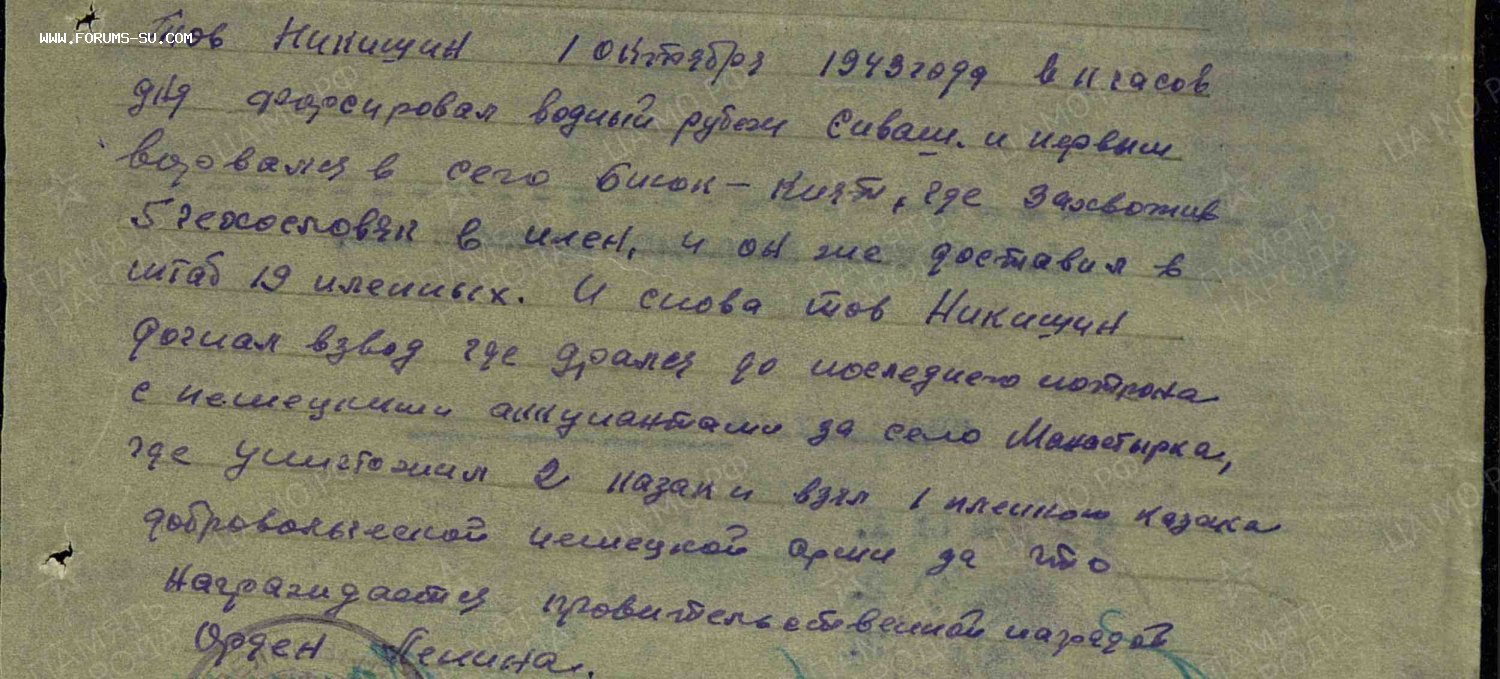 www.forums-su.com
тов Никищин 1 октября 1943 года в 11 часов
дня форсировал водный рубеж Сиваш. и первым
ворвался в село Биюк-Кият, где захвотив
5 чехословян в плен, и он же доставил в
штаб 19 пленных. И снова тов Никищин
догнал взвод где дрался до последнего потрона
с немецкими аккупантами за село Монастырка,
где уничтожил 2 казак и взял 1 пленного казака
добровольческой немецкой арми за что
Награждается провительственной наградой
Орден Ленина.